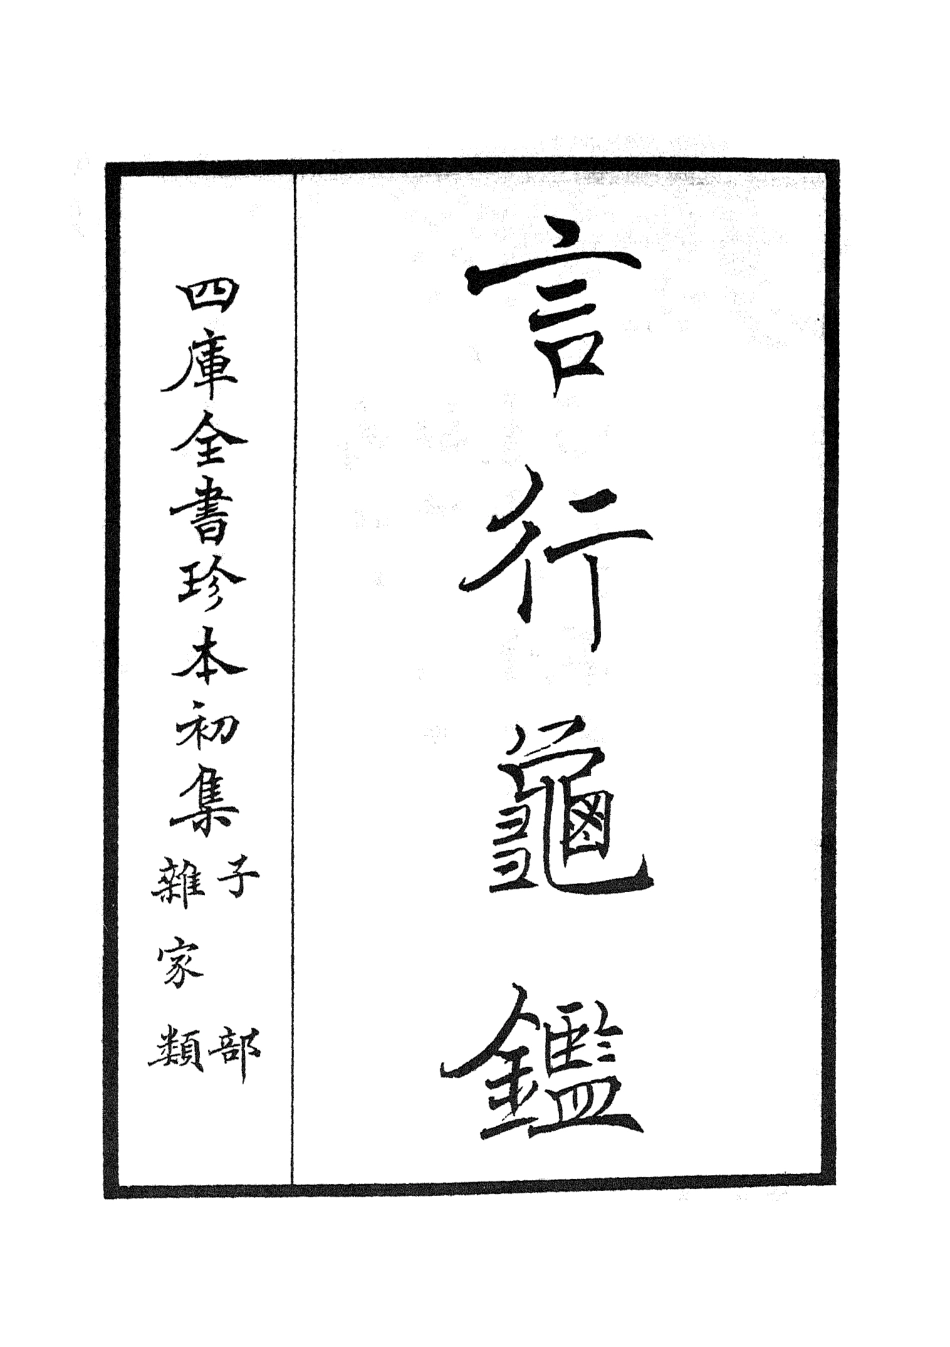 言行龜鑑
四庫全書珍本初集
子部
雜家類